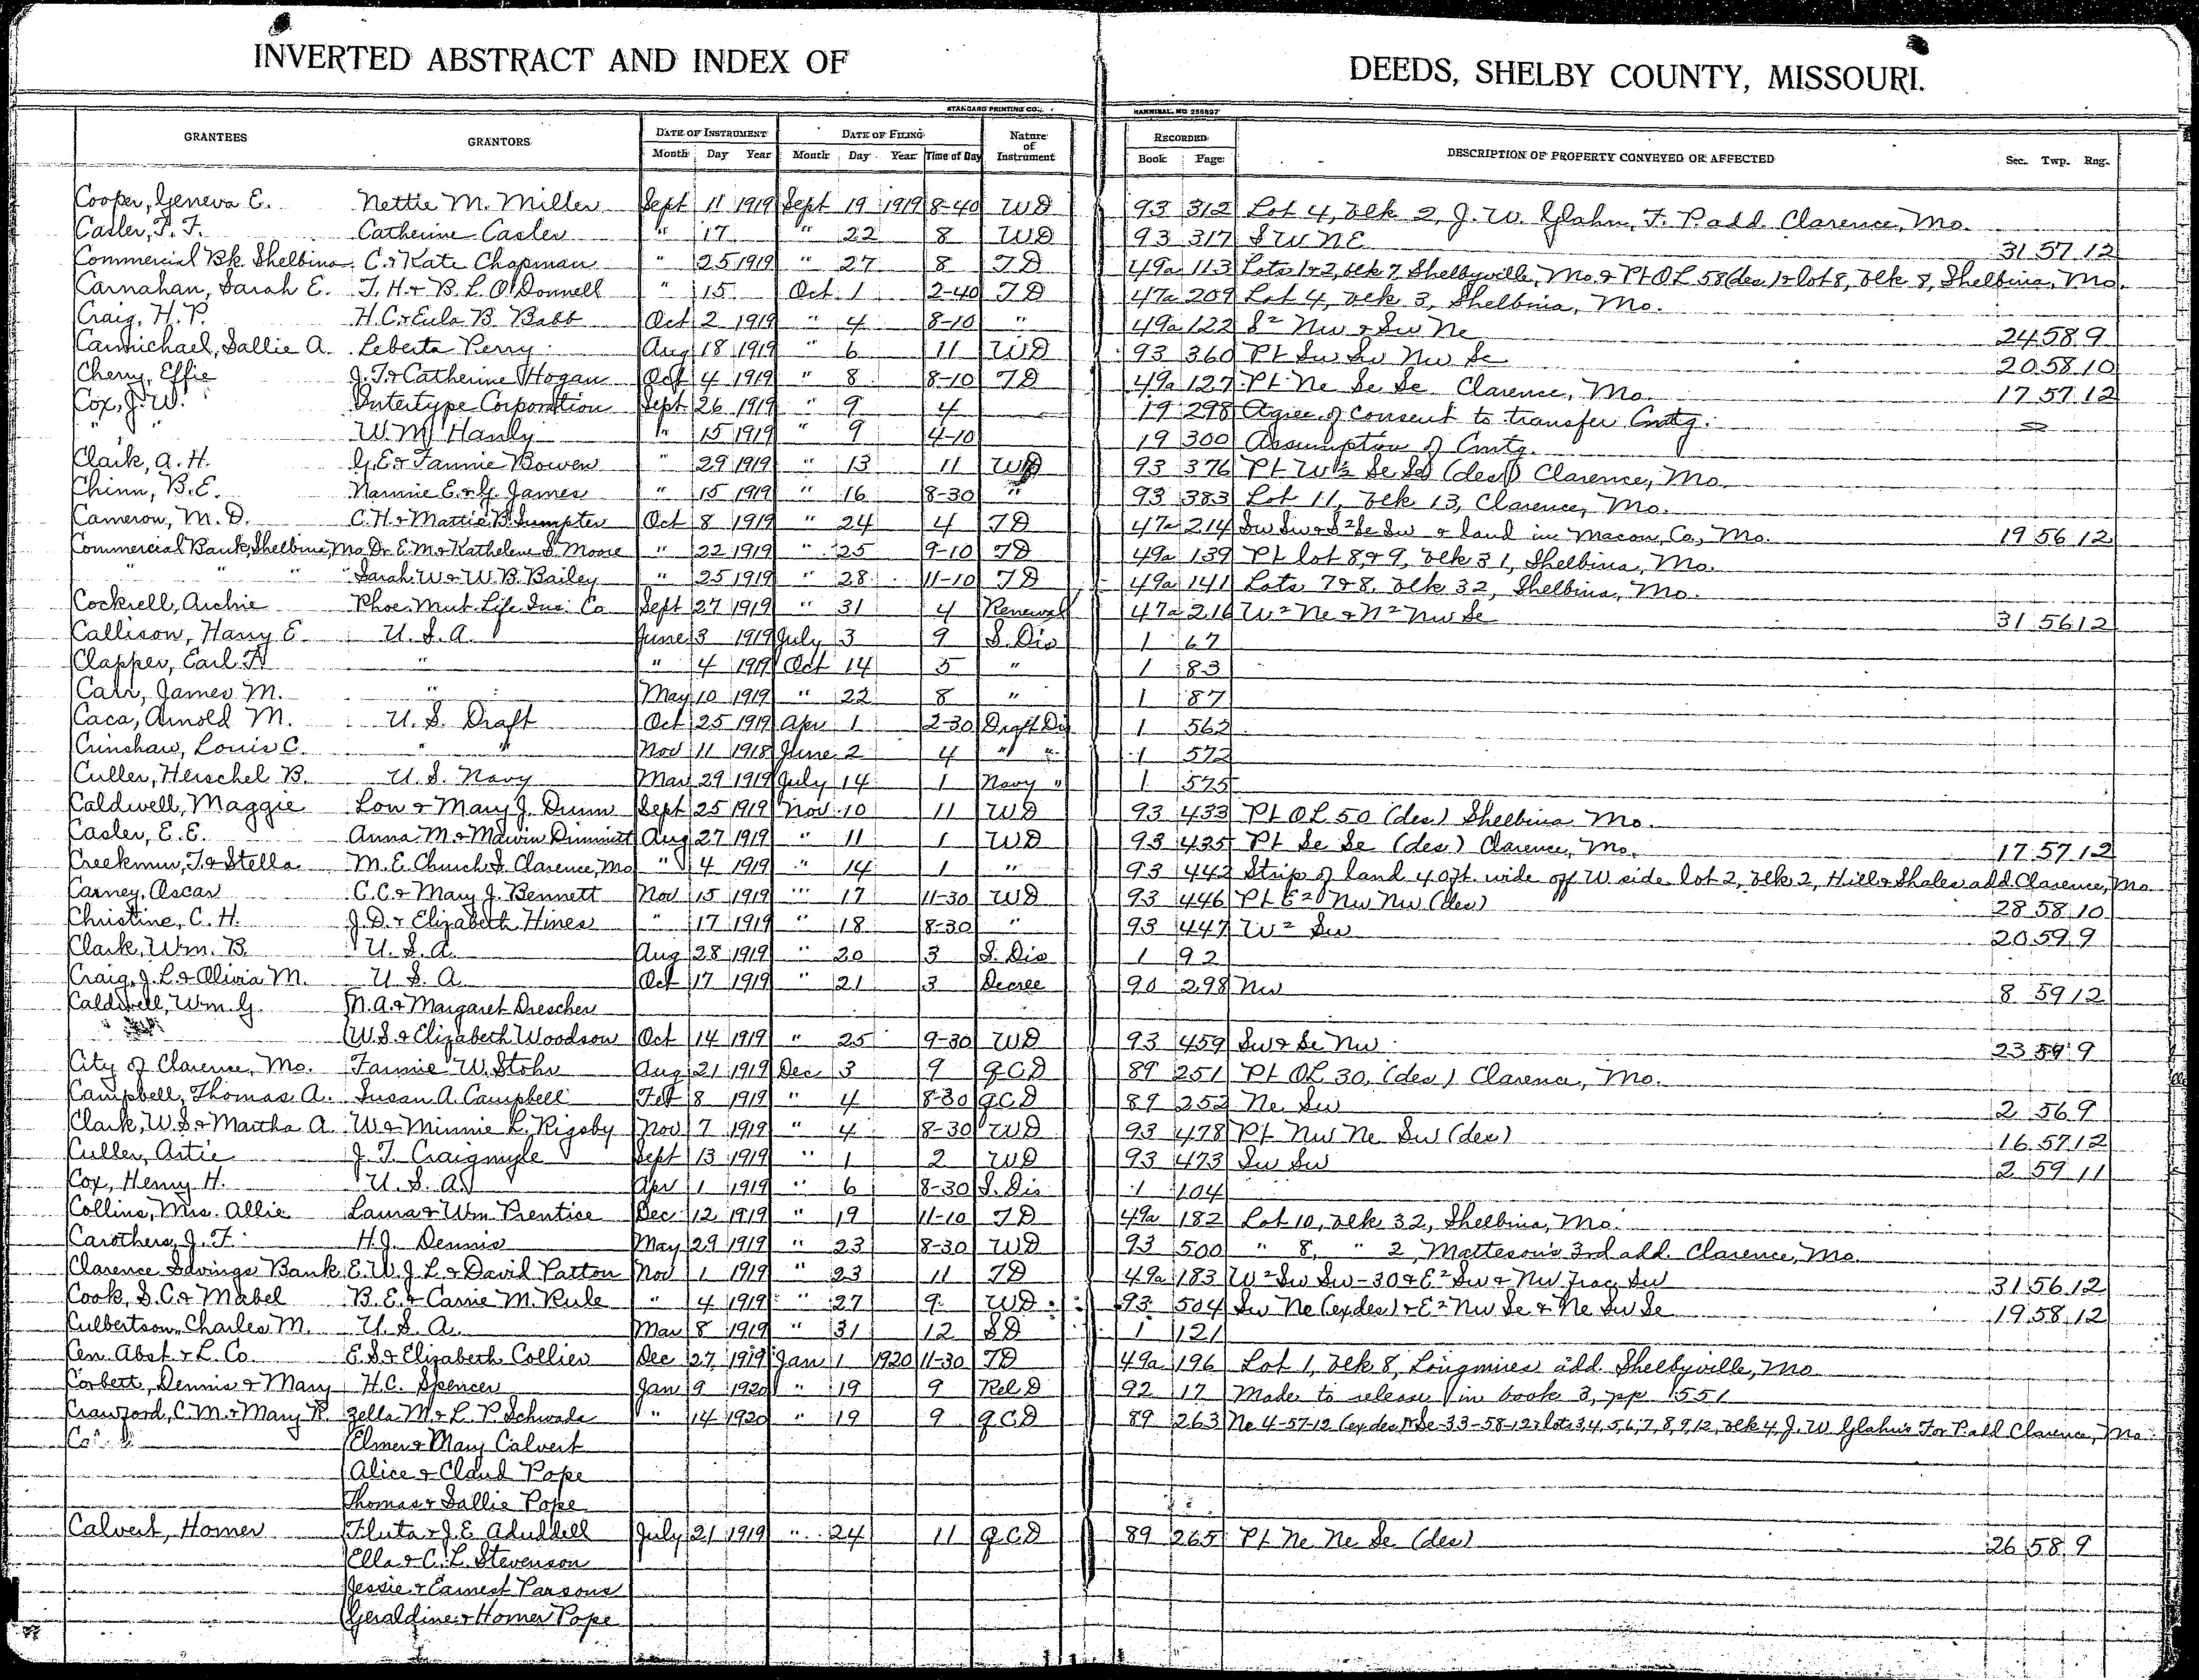 INVERTED ABSTRACT AND INDEX OF DEEDS, SHELBY COUNTY, MISSOURI.
STANDARD PRINTING CO., HANNIBAL, MO
GRANTEES GRANTORS DATE OF INSTRUMENT DATE OF FILING Nature of Instrument RECORDED DESCRIPTION OF PROPERTY CONVEYED OR AFFECTED Sec. Twp. Rng.
Month Day Year Month Day Year Time of Day Book Page
Cooper, Geneva E. Nettie M. Miller Sept 11 1919 Sept 19 1919 8-40 WD 93 312 Lot 4, blk 2, J. W. Glahn, F. P. add. Clarence, Mo.
Casler, F. F. Catherine Casler " 17 " 22 8 WD 93 317 SW NE 31 57 12
Commercial Bk. Shelbina C. & Kate Chapman " 25 1919 " 27 8 TD 49a 113 Lots 1 & 2, blk 7, Shelbyville, Mo. & Pt OL 58 (des) & lot 8, blk 8, Shelbina, Mo.
Carnahan, Sarah E. T. H. & B. L. O'Donnell " 15 Oct 1 2-40 TD 47a 209 Lot 4, blk 3, Shelbina, Mo.
Craig, H. P. H. C. & Eula B. Babb Oct 2 1919 " 4 8-10 " 49a 122 S² Nw & Sw Ne 24 58 9
Carmichael, Sallie A. Leberta Perry Aug 18 1919 " 6 11 WD 93 360 Pt Sw Sw Nw Se 20 58 10
Cherry, Effie J. T. & Catherine Hogan Oct 4 1919 " 8 8-10 TD 49a 127 Pt Ne Se Se Clarence, Mo. 17 57 12
Cox, J. W. Intertype Corporation Sept 26 1919 " 9 4 19 298 Agree. of consent to transfer Cmtg.
" " W. M. Hanly " 15 1919 " 9 4-10 19 300 Assumption of Cmtg.
Clark, A. H. G. E. & Fannie Bowen " 29 1919 " 13 11 WD 93 376 Pt W½ Se Se (des) Clarence, Mo.
Chinn, B. E. Nannie E. & G. James " 15 1919 " 16 8-30 " 93 383 Lot 11, blk 13, Clarence, Mo.
Cameron, M. D. C. H. & Mattie B. Sumpter Oct 8 1919 " 24 4 TD 47a 214 Sw Sw & S² Se Sw & land in Macon, Co., Mo. 19 56 12
Commercial Bank, Shelbina, Mo Dr. E. M. & Kathelene S. Moore " 22 1919 " 25 9-10 TD 49a 139 Pt lot 8 & 9, blk 31, Shelbina, Mo.
" " " " Sarah W. & W. B. Bailey " 25 1919 " 28 11-10 TD 49a 141 Lots 7 & 8, blk 32, Shelbina, Mo.
Cockrell, Archie Phoe. Mut. Life Ins. Co Sept 27 1919 " 31 4 Renewal 47a 216 W² Ne & N² Nw Se 31 56 12
Callison, Harry E. U. S. A. June 3 1919 July 3 9 S. Dis 1 67
Clapper, Earl " " 4 1919 Oct 14 5 " 1 83
Carr, James M. " May 10 1919 " 22 8 " 1 87
Caca, Arnold M. U. S. Draft Oct 25 1919 Apr 1 2-30 Draft Dis 1 562
Crinshaw, Louis C. " " Nov 11 1918 June 2 4 " " 1 572
Culler, Herschel B. U. S. Navy Mar 29 1919 July 14 1 Navy " 1 575
Caldwell, Maggie Lon & Mary J. Dunn Sept 25 1919 Nov 10 11 WD 93 433 Pt OL 50 (des) Shelbina Mo.
Casler, E. E. Anna M. & Marvin Dimmitt Aug 27 1919 " 11 1 WD 93 435 Pt Se Se (des) Clarence, Mo. 17 57 12
Creekmur, T. & Stella M. E. Church S. Clarence, Mo " 4 1919 " 14 1 " 93 442 Strip of land 40 ft. wide off W side lot 2, blk 2, Hill & Shales add. Clarence, Mo
Carney, Oscar C. C. & Mary J. Bennett Nov 15 1919 " 17 11-30 WD 93 446 Pt E² Nw Nw (des) 28 58 10
Christine, C. H. J. D. & Elizabeth Hines " 17 1919 " 18 8-30 " 93 447 W² Sw 20 59 9
Clark, Wm. B. U. S. A. Aug 28 1919 " 20 3 S. Dis 1 92
Craig, J. L. & Olivia M. U. S. A. Oct 17 1919 " 21 3 Decree 90 298 Nw 8 59 12
Caldwell, Wm. G. N. A. & Margaret Drescher
W. S. & Elizabeth Woodson Oct 14 1919 " 25 9-30 WD 93 459 Sw & Se Nw 23 59 9
City of Clarence, Mo. Fannie W. Stohr Aug 21 1919 Dec 3 9 QCD 89 251 Pt OL 30, (des) Clarence, Mo.
Campbell, Thomas A. Susan A. Campbell Feb 8 1919 " 4 8-30 QCD 89 252 Ne Sw 2 56 9
Clark, W. S. & Martha A. W. & Minnie L. Rigsby Nov 7 1919 " 4 8-30 WD 93 478 Pt Nw Ne Sw (des) 16 57 12
Culler, Artie J. T. Craigmyle Sept 13 1919 " 1 2 WD 93 473 Sw Sw 2 59 11
Cox, Henry H. U. S. A. Apr 1 1919 " 6 8-30 S. Dis 1 104
Collins, Mrs. Allie Laura & Wm Prentice Dec 12 1919 " 19 11-10 TD 49a 182 Lot 10, blk 32, Shelbina, Mo.
Carothers, J. F. H. J. Dennis May 29 1919 " 23 8-30 WD 93 500 " 8, " 2, Matteson's 3rd add. Clarence, Mo.
Clarence Savings Bank E. W. J. L. & David Patton Nov 1 1919 " 23 11 TD 49a 183 W² Sw Sw-30 & E² Sw & Nw frac Sw 31 56 12
Cook, S. C. & Mabel B. E. & Carrie M. Rule " 4 1919 " 27 9 WD 93 504 Sw Ne (ex des) & E² Nw Se & Ne Sw Se 19 58 12
Culbertson, Charles M. U. S. A. Mar 8 1919 " 31 12 SD 1 121
Cen. Abst. & L. Co. E. S. & Elizabeth Collier Dec 27 1919 Jan 1 1920 11-30 TD 49a 196 Lot 1, blk 8, Longmires add. Shelbyville, Mo
Corbett, Dennis & Mary H. C. Spencer Jan 9 1920 " 19 9 Rel D 92 17 Made to release in book 3, pp 551
Crawford, C. M. & Mary R. Zella M. & L. P. Schwada " 14 1920 " 19 9 QCD 89 263 Ne 4-57-12 (ex des) & Se-33-58-12 & lots 3,4,5,6,7,8,9,12, blk 4, J. W. Glahn's For P. add Clarence, Mo.
Elmer & Mary Calvert
Alice & Claud Pope
Thomas & Sallie Pope
Calvert, Homer Fluta & J. E. Aduddell July 21 1919 " 24 11 QCD 89 265 Pt Ne Ne Se (des) 26 58 9
Ella & C. L. Stevenson
Jessie & Earnest Parsons
Geraldine & Homer Pope